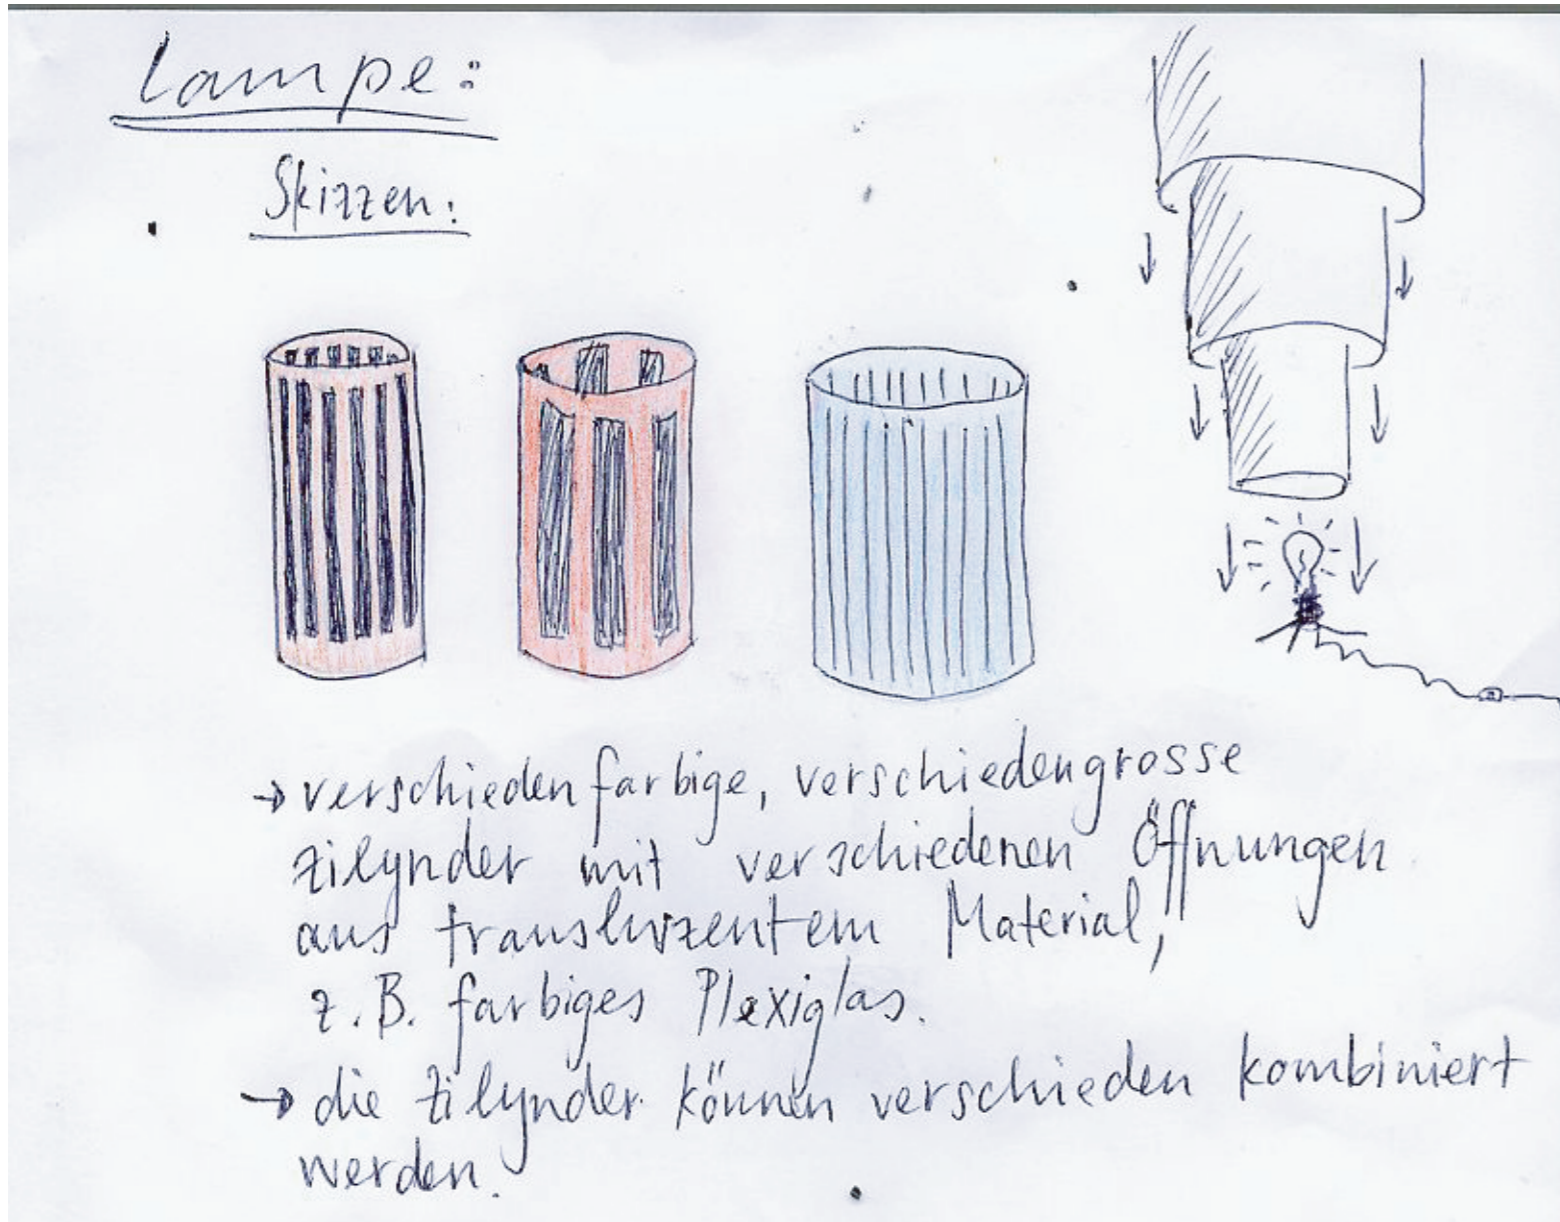 Lampe:
Skizzen:
→ verschiedenfarbige, verschiedengrosse
zilynder mit verschiedenen Öffnungen
aus transluzentem Material,
z.B. farbiges Plexiglas.
→ die zilynder können verschieden kombiniert
werden.